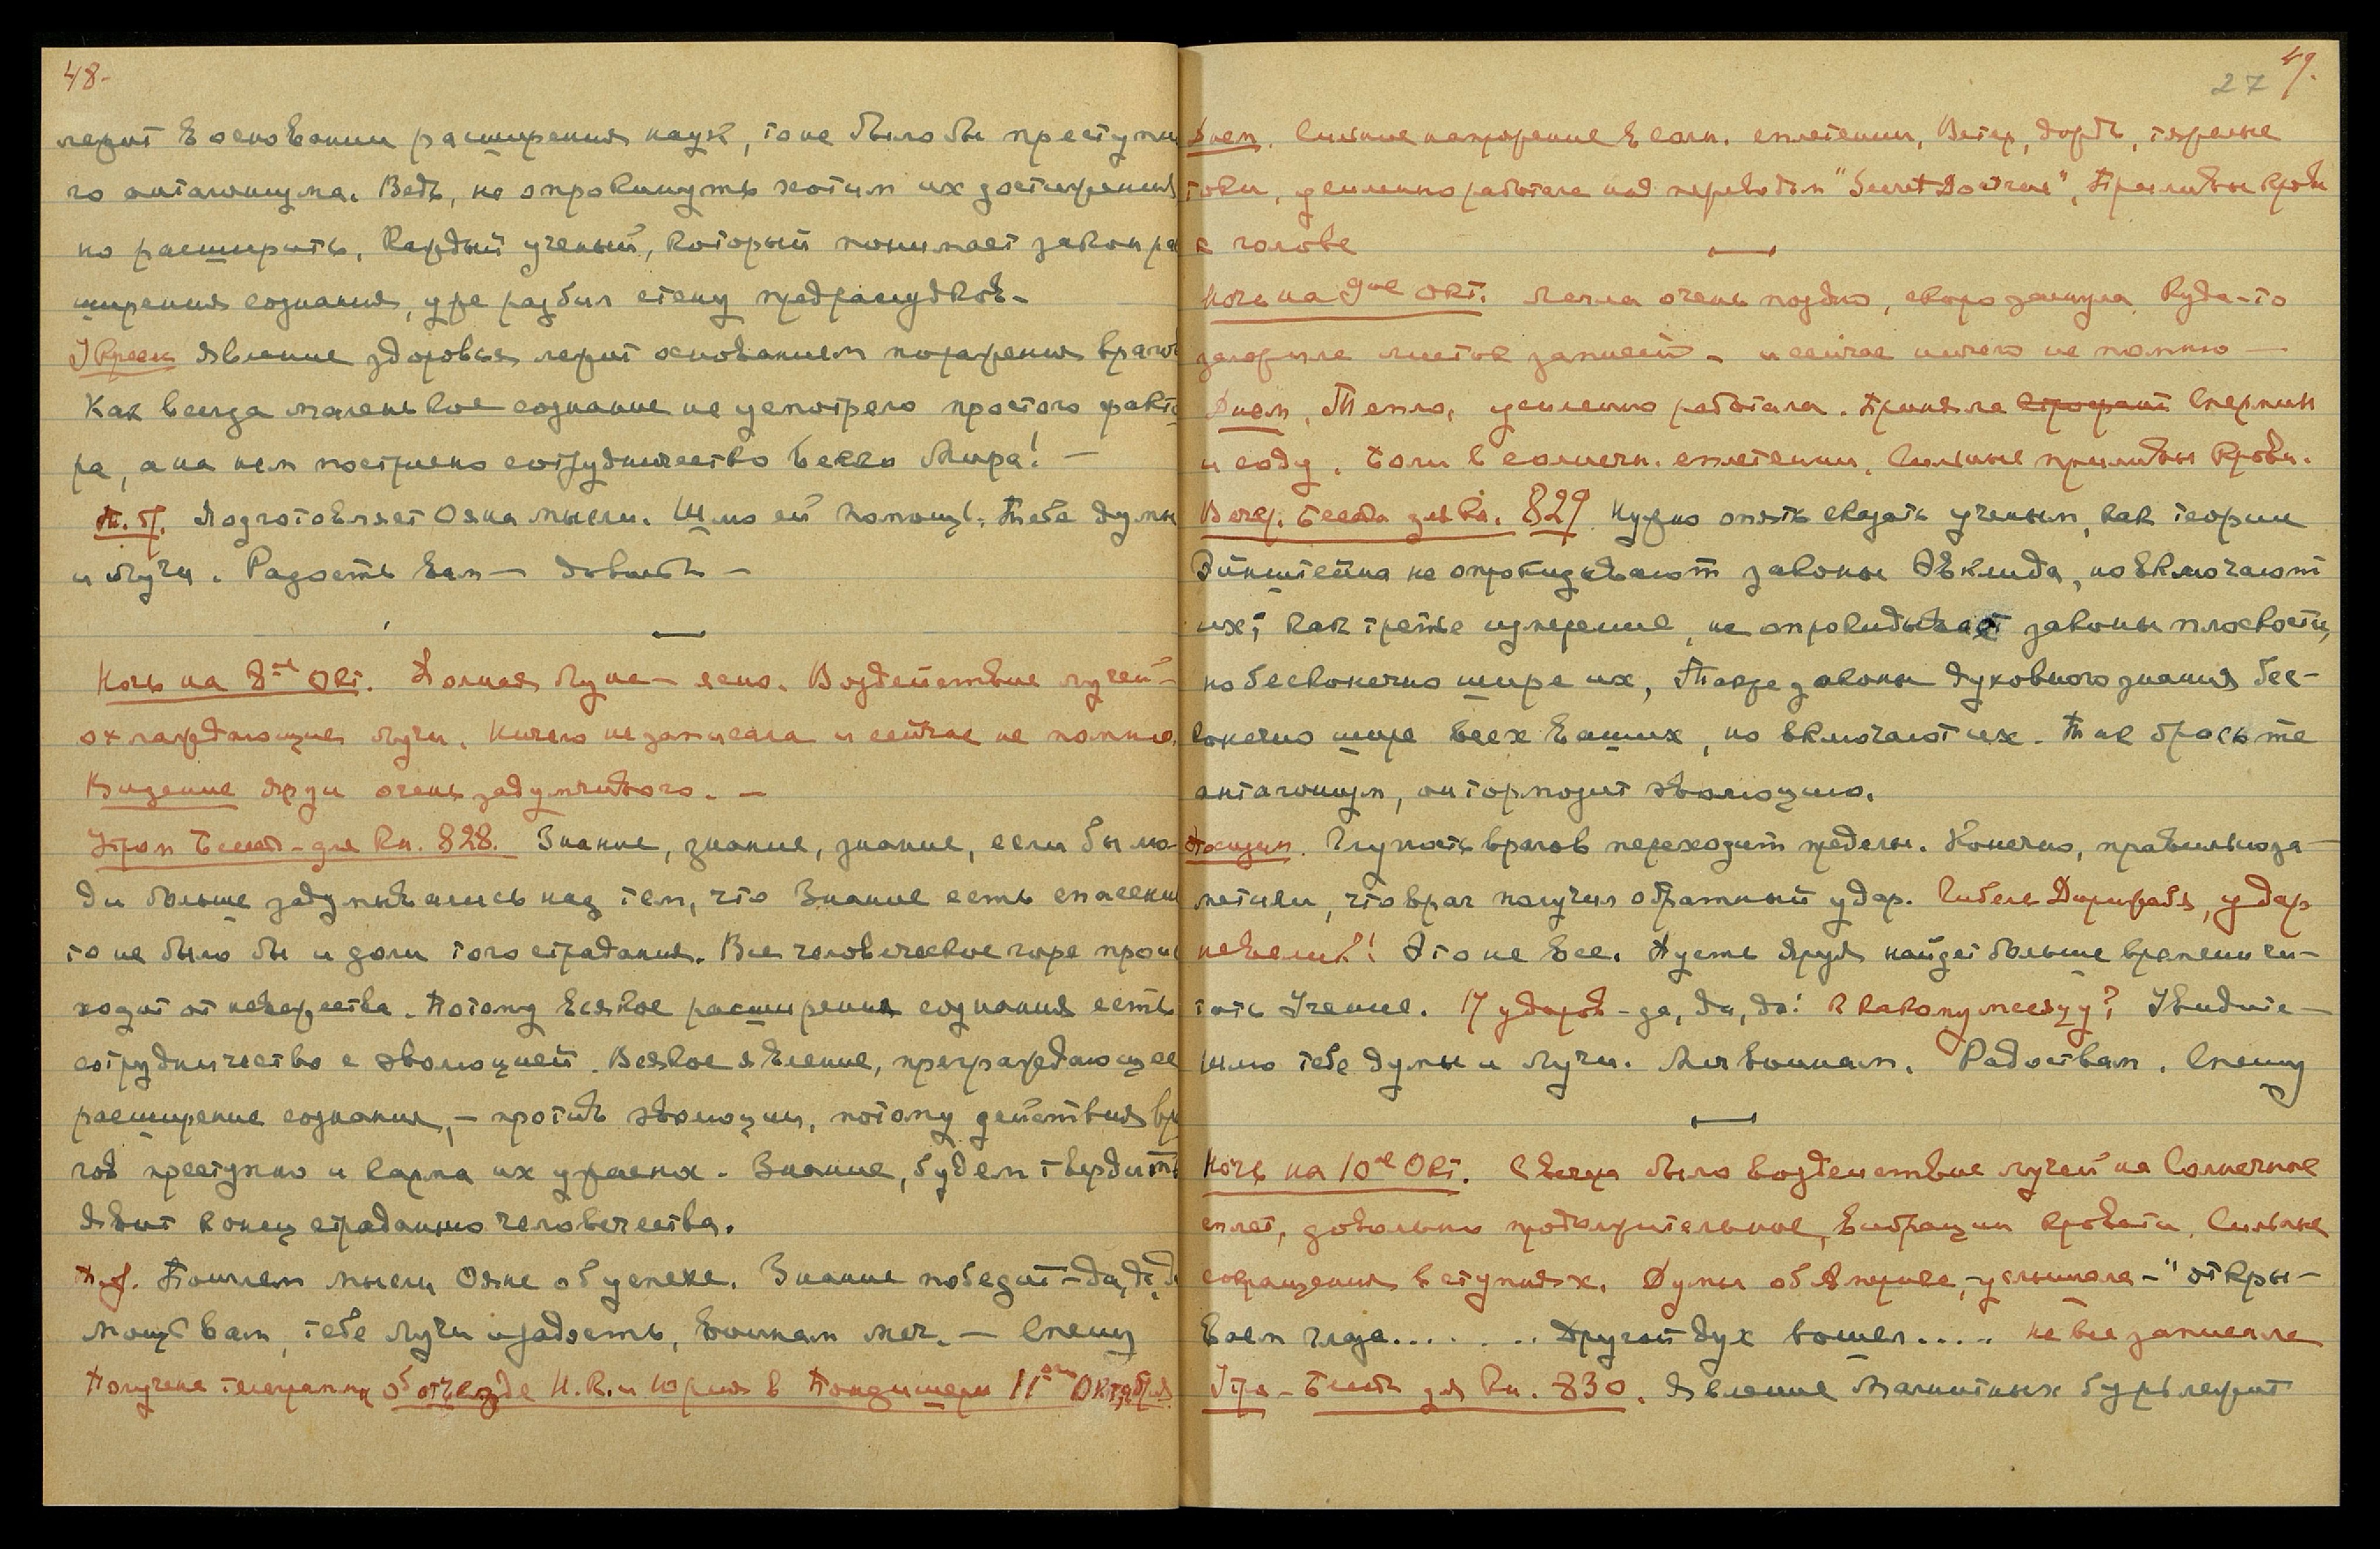 48-
лежит в основании расширения наук, то не было бы преступно
го антагонизма. Ведь, не опрокинуть хотим их достижения
но расширить. Каждый ученый, который понимает закон ра
ширения сознания, уже разбил стену предрассудков.
Явление здоровья лежит основанием поражения врагов
Как всегда маленькое сознание не усмотрело простого факто
ра, а на нем построено сотрудничество всего Мира! —
Подготовляет Ояна мысли. Шлю ей помощь. Тебе думы
и Лучи. Радость вам — довольно —
Ночь на 8ое Окт. Полная Луна — ясно. Воздействие лучей —
охлаждающие лучи. Ничего не записала и сейчас не помню.
Видение Яруи очень задумчивого. —
Утром Беседа — для Кн. 828. Знание, знание, знание, если бы лю-
ди больше задумывались над тем, что Знание есть спасение
то не было бы и доли того страдания. Все человеческое горе проис
ходит от невежества. Потому всякое расширение сознания есть
сотрудничество с эволюцией. Всякое явление, преграждающее
расширение сознания, — против эволюции, потому действия вра
гов преступно и карма их ужасна. Знание, будем твердить
явит конец страданию человечества.
Пошлем мысли Ояне об успехе. Знание победит — да, да, да
Мощь вам, тебе Лучи и радость, воинам меч. — Спешу
Получена телеграмма об отъезде Н.К. и Юрия в Пондишери 11ого Октября
49.
27
Днем. Сильное напряжение в солн. сплетении, Ветер, дождь, тяжелые
токи, усиленно работала над переводом "Secret Doctrine", Приливы крови
к голове
Ночь на 9ое Окт. Легла очень поздно, скоро заснула. Куда-то
заложила листок записей — и сейчас ничего не помню —
Днем. Тепло, усиленно работала. Приняла строфант Спермин
и соду. Боли в солнечн. сплетении. Сильные приливы крови.
Вечер. Беседа для Кн. 829. Нужно опять сказать ученым, как теории
Эйнштейна не опрокидывают законы Эвклида, но включают
их; как третье измерение, не опрокидывает законы плоскости,
но бесконечно шире их, Также законы духовного знания бес-
конечно шире всех ваших, но включают их. Так бросьте
антагонизм, он тормозит эволюцию.
Глупость врагов переходит пределы. Конечно, правильно за-
метили, что враг получил обратный удар. Гибель Дирижабля, удар
невелик! Это не все. Пусть Яруя найдет больше времени чи-
тать Учение. 17 ударов — да, да, да! К какому месяцу? Увидите —
Шлю тебе думы и Лучи. Меч воинам. Радость вам. Спешу
Ночь на 10ое Окт. С вечера было воздействие лучей на Солнечное
сплет, довольно продолжительное, вибрации кровати. Сильные
сокращения в ступнях. Думы об Америке, — услышала — "откры-
ваем глаза . . . . . . . Другой дух вошел . . . . . не все записала
Утро — Беседа для Кн. 830. Явление Магнитных бурь лежит